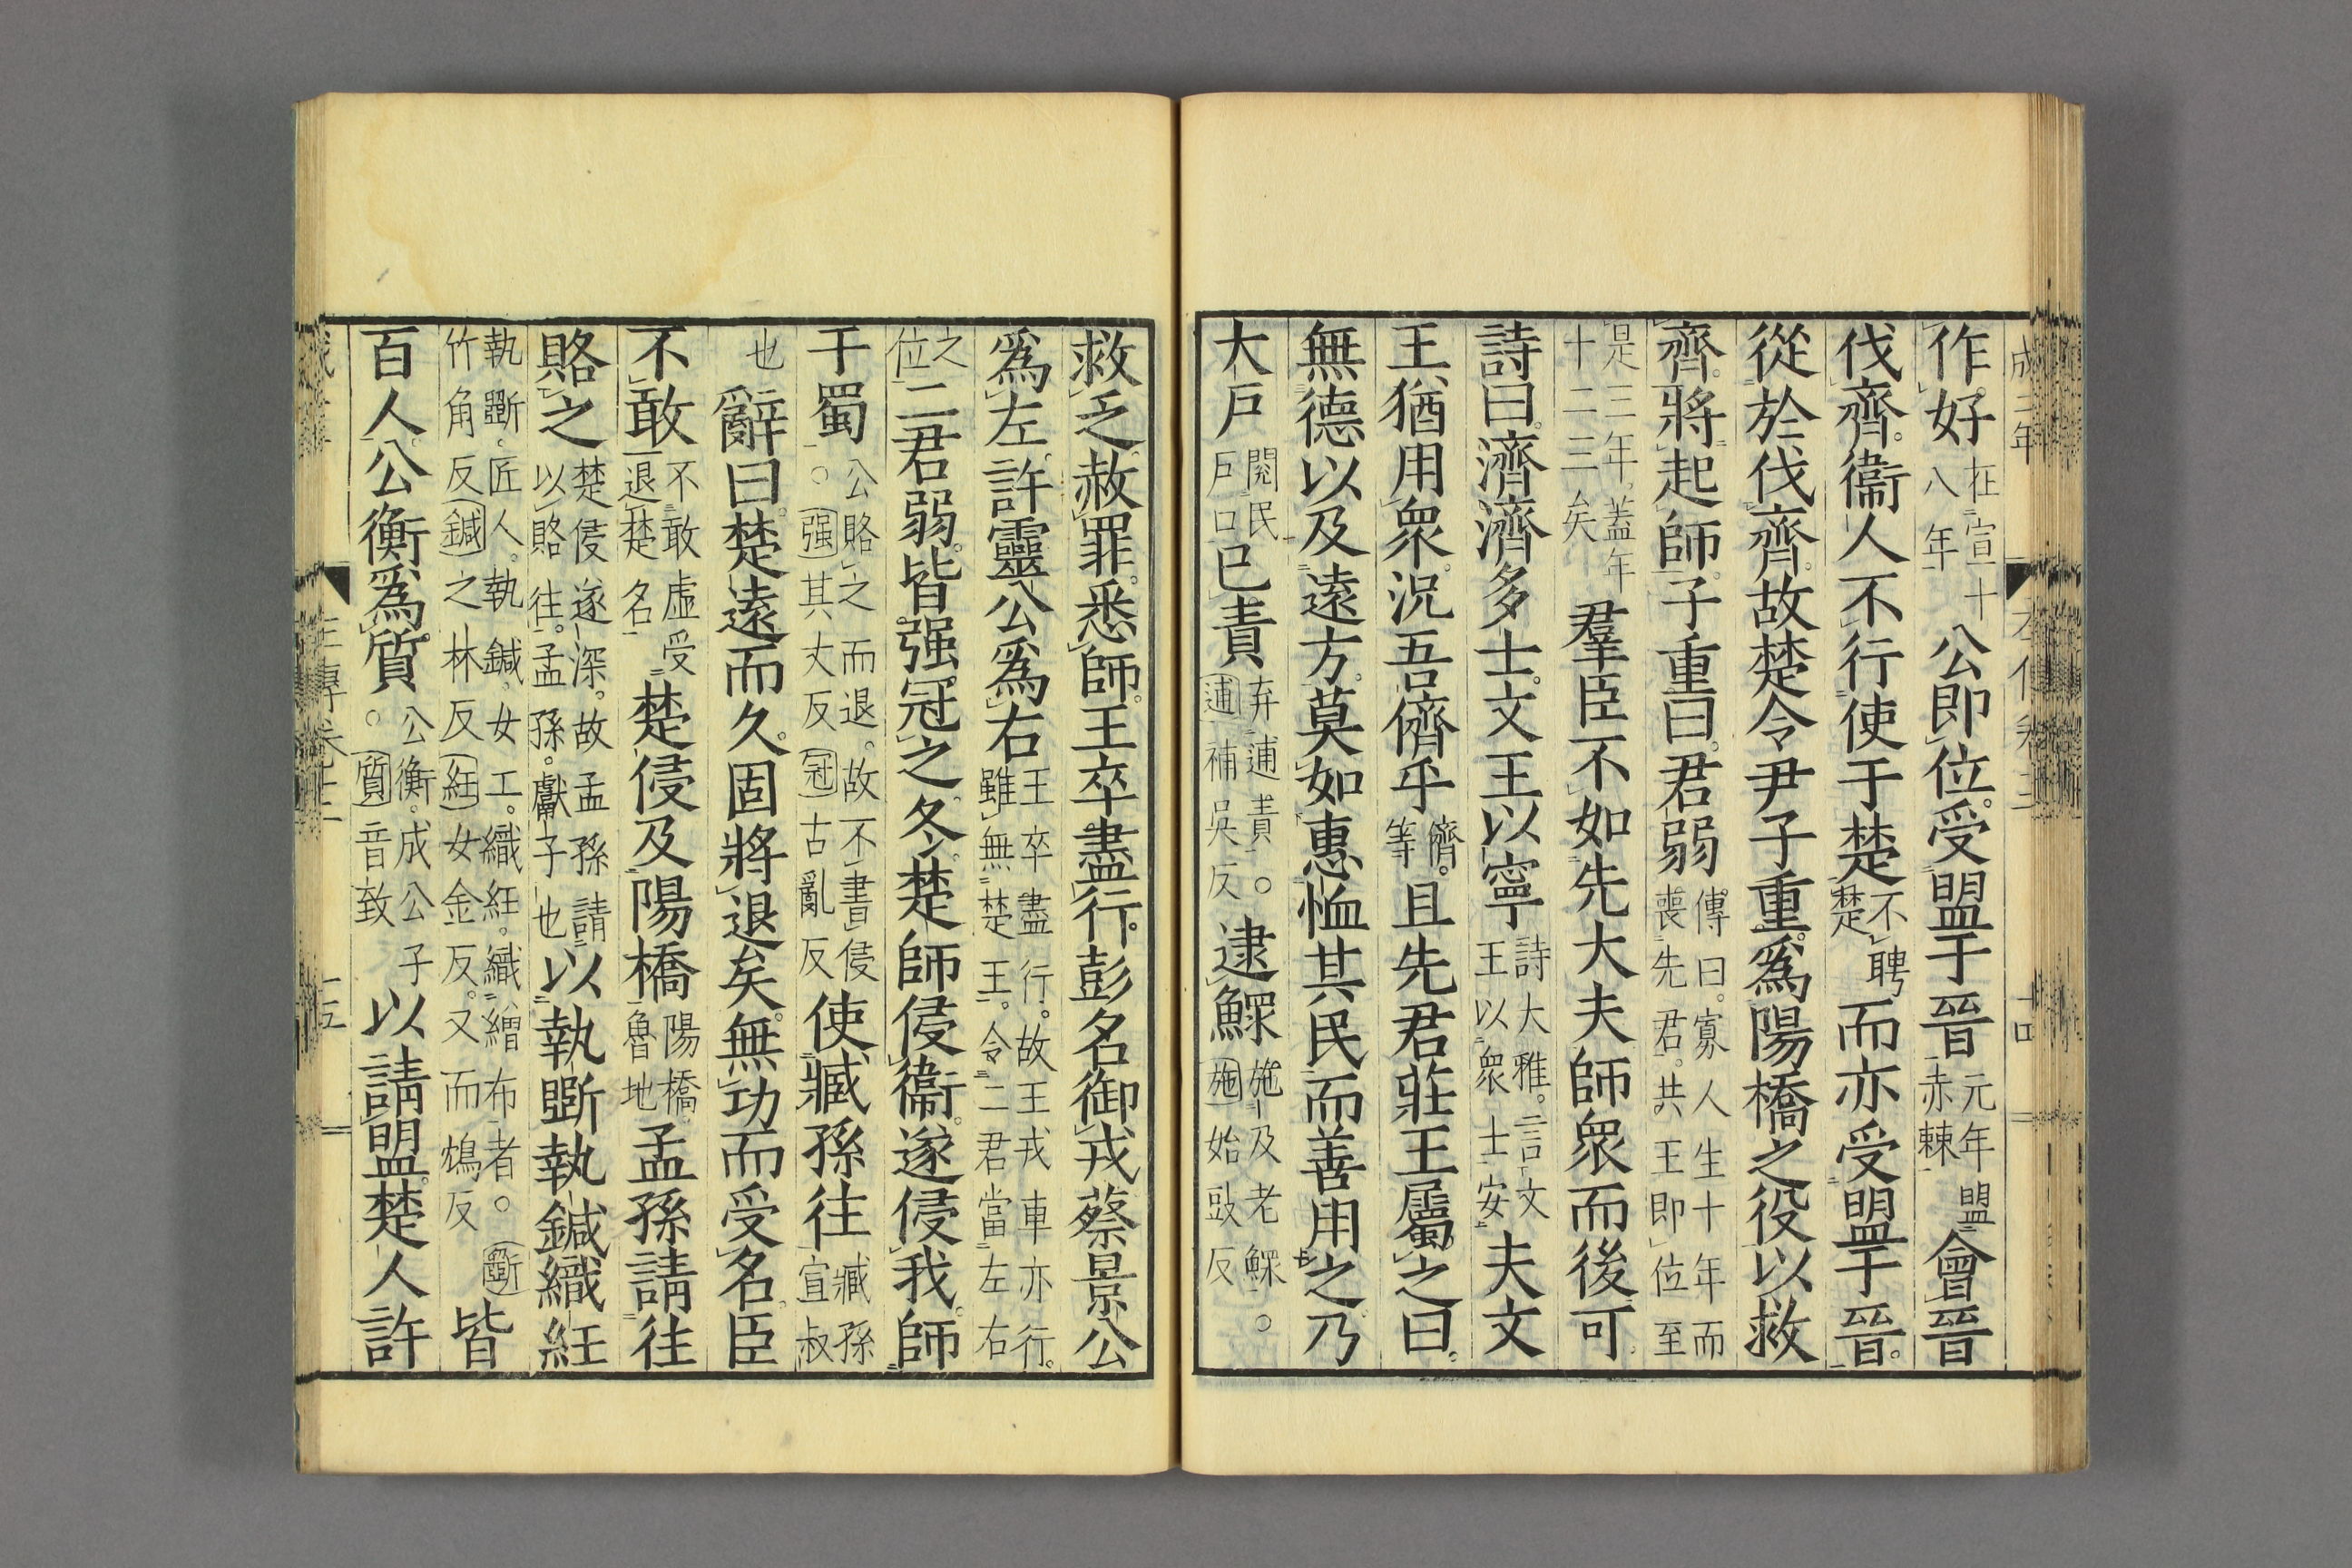 作好在宣十八年公即位受盟于晉元年盟赤棘會晉
伐齊衞人不行使于楚不聘楚而亦受盟于晉
從於伐齊故楚令尹子重爲陽橋之役以救
齊將起師子重曰君弱傳曰寡人生十年而喪先君共王即位至
是三年蓋年十二三矣羣臣不如先大夫師衆而後可
詩曰濟濟多士文王以寧詩大雅言文王以衆士安夫文
王猶用衆況吾儕乎儕等且先君莊王屬之曰
無德以及遠方莫如惠恤其民而善用之乃
大戶閱民戶口已責弃逋責○逋補吳反逮鰥施及老鰥○施始豉反
救乏赦罪悉師王卒盡行彭名御戎蔡景公
爲左許靈公爲右王卒盡行故王戎車亦行雖無楚王令二君當左右
之位二君弱皆强冠之冬楚師侵衞遂侵我師
于蜀公賂之而退故不書侵○强其丈反冠古亂反使臧孫往臧孫宣叔
也辭曰楚遠而久固將退矣無功而受名臣
不敢不敢虛受退楚名楚侵及陽橋陽橋魯地孟孫請往
賂之楚侵遂深故孟孫請以賂往孟孫獻子也以執斲執鍼織紝
執斲匠人執鍼女工織紝織繒布者○斲竹角反鍼之林反紝女金反又而鴆反皆
百人公衡爲質公衡成公子○質音致以請盟楚人許